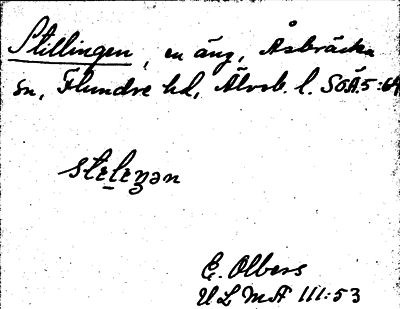 Stillingen, en äng, Åsbräcka
sn, Flundre hd, Älvsb. l. SOÄ5:64
stɛlɛŋən
E. Olbers
ULMA 111:53